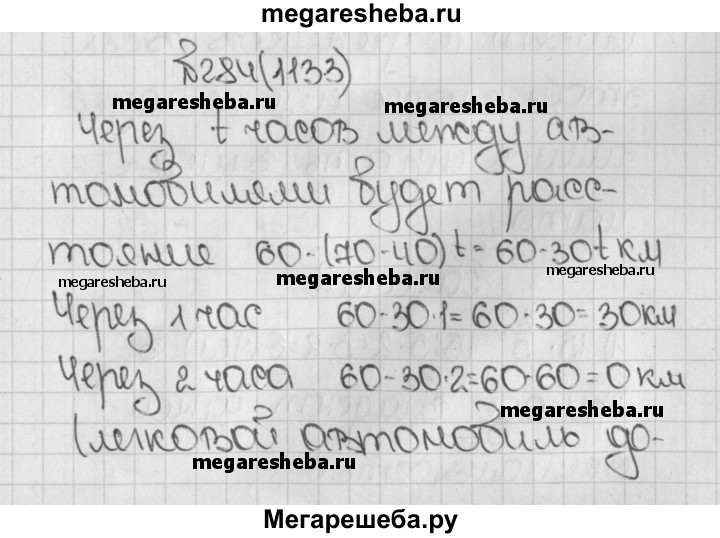 megaresheba.ru
№284(1133)
megaresheba.ru megaresheba.ru
Через t часов между ав-
томобилями будет расс-
тояние 60-(70-40)t=60-30t км
megaresheba.ru megaresheba.ru megaresheba.ru
Через 1 час 60-30·1=60-30=30км
Через 2 часа 60-30·2=60-60=0км
megaresheba.ru
(легковой автомобиль до-
megaresheba.ru
Мегарешеба.ру